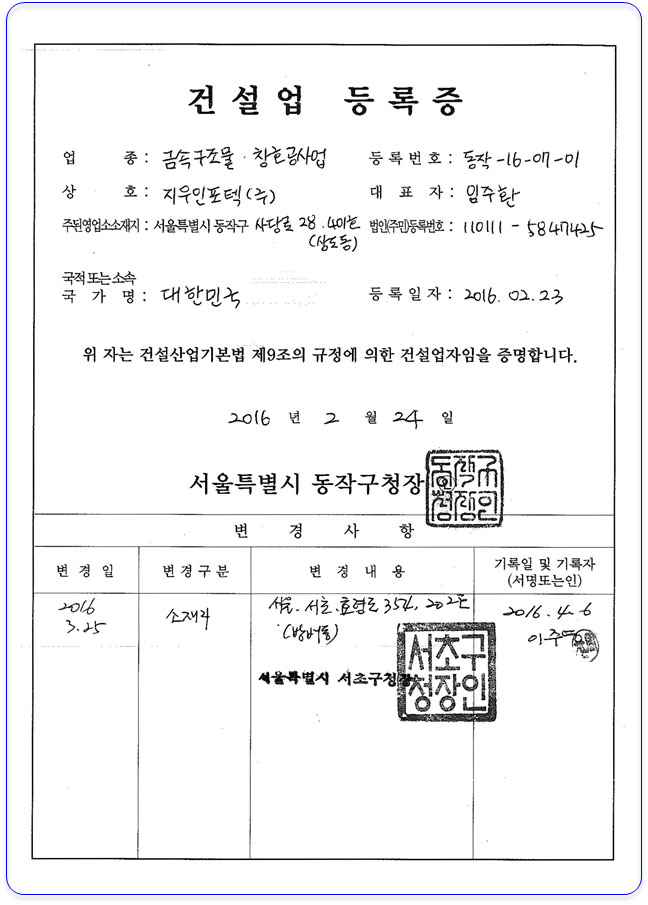 건설업 등록증
업 종 : 금속구조물·창호공사업 등록번호 : 동작-16-07-01
상 호 : 지우인포텍(주) 대 표 자 : 임주환
주된영업소소재지 : 서울특별시 동작구 사당로 28. 401호 법인(주민)등록번호 : 110111-5847425
(상도동)
국적 또는 소속
국 가 명 : 대한민국 등록일자 : 2016. 02. 23
위 자는 건설산업기본법 제9조의 규정에 의한 건설업자임을 증명합니다.
2016 년 2 월 24 일
서울특별시 동작구청장
동작구청장인
변 경 사 항
변 경 일 변경구분 변 경 내 용 기록일 및 기록자
(서명또는인)
2016 소재지 서울. 서초. 효령로 354, 202호 2016. 4. 6
3.25 (방배동) 이주
서울특별시 서초구청장
서초구청장인